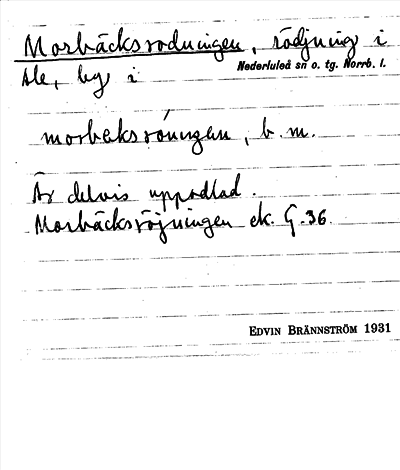 Morbäcksrodningen, rödjning i
Ale, by i
Nederluleå sn o. tg. Norrb. l.
morbeksróningen, b. m.
Är delvis uppodlad.
Morbäcksröjningen ek. G. 36.
EDVIN BRÄNNSTRÖM 1931